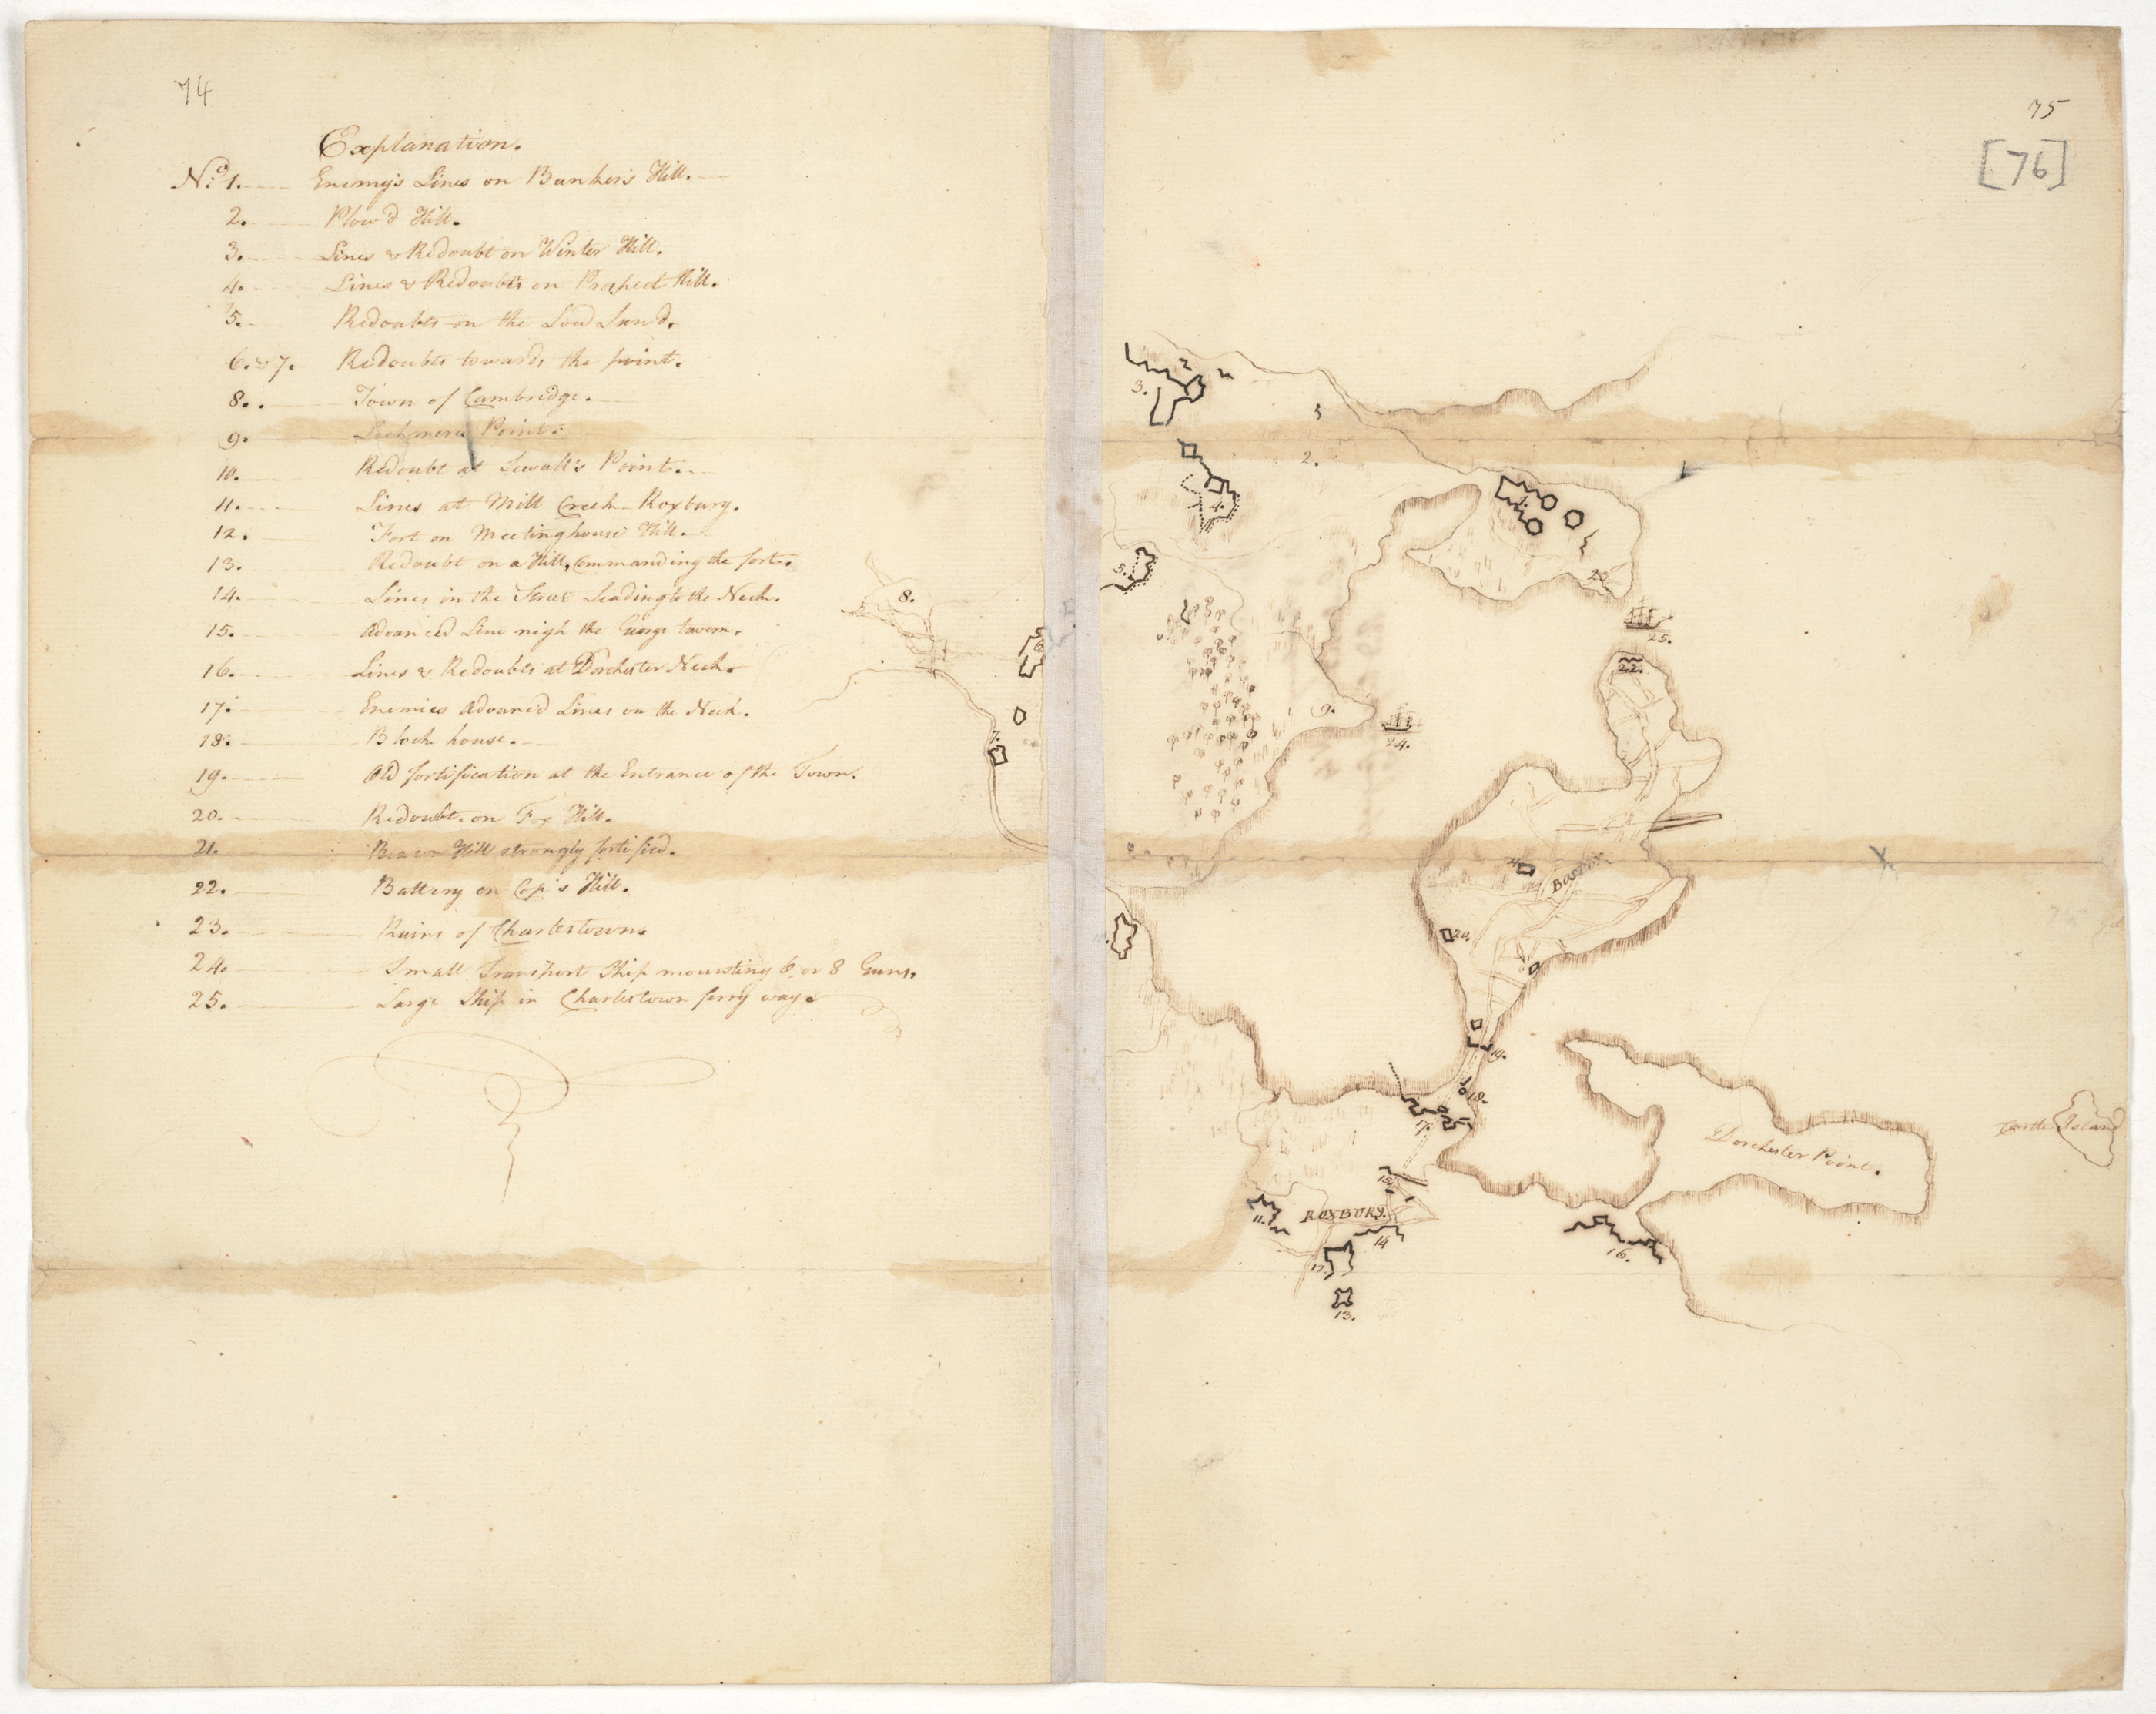 74
Explanation.
No. 1. Enemy's Lines on Bunker's Hill.
2. Plow'd Hill.
3. Lines & Redoubt on Winter Hill.
4. Lines & Redoubts on Prospect Hill.
5. Redoubts on the Low Land.
6. & 7. Redoubts towards the point.
8. Town of Cambridge.
9. Lechmere's Point.
10. Redoubt at Sewall's Point.
11. Lines at Mill Creek - Roxbury.
12. Fort on Meetinghouse Hill.
13. Redoubt on a Hill, Commanding the fort.
14. Lines in the Street Leading to the Neck.
15. Advanced Line nigh the George tavern.
16. Lines & Redoubts at Dorchester Neck.
17. Enemies Advanced Lines on the Neck.
18. Block house.
19. Old fortification at the Entrance of the Town.
20. Redoubt on Fox Hill.
21. Beacon Hill strongly fortified.
22. Battery on Cop's Hill.
23. Ruins of Charlestown.
24. Small Transport Ship mounting 6 or 8 Guns.
25. Large Ship in Charlestown ferry way.
8.
6
7.
75
[76]
3.
2.
4.
1.
5.
23
25.
22.
9.
24.
BOSTON
20.
19.
18.
17.
Dorchester Point.
Castle Island
15.
11.
ROXBURY.
14
16.
12.
13.